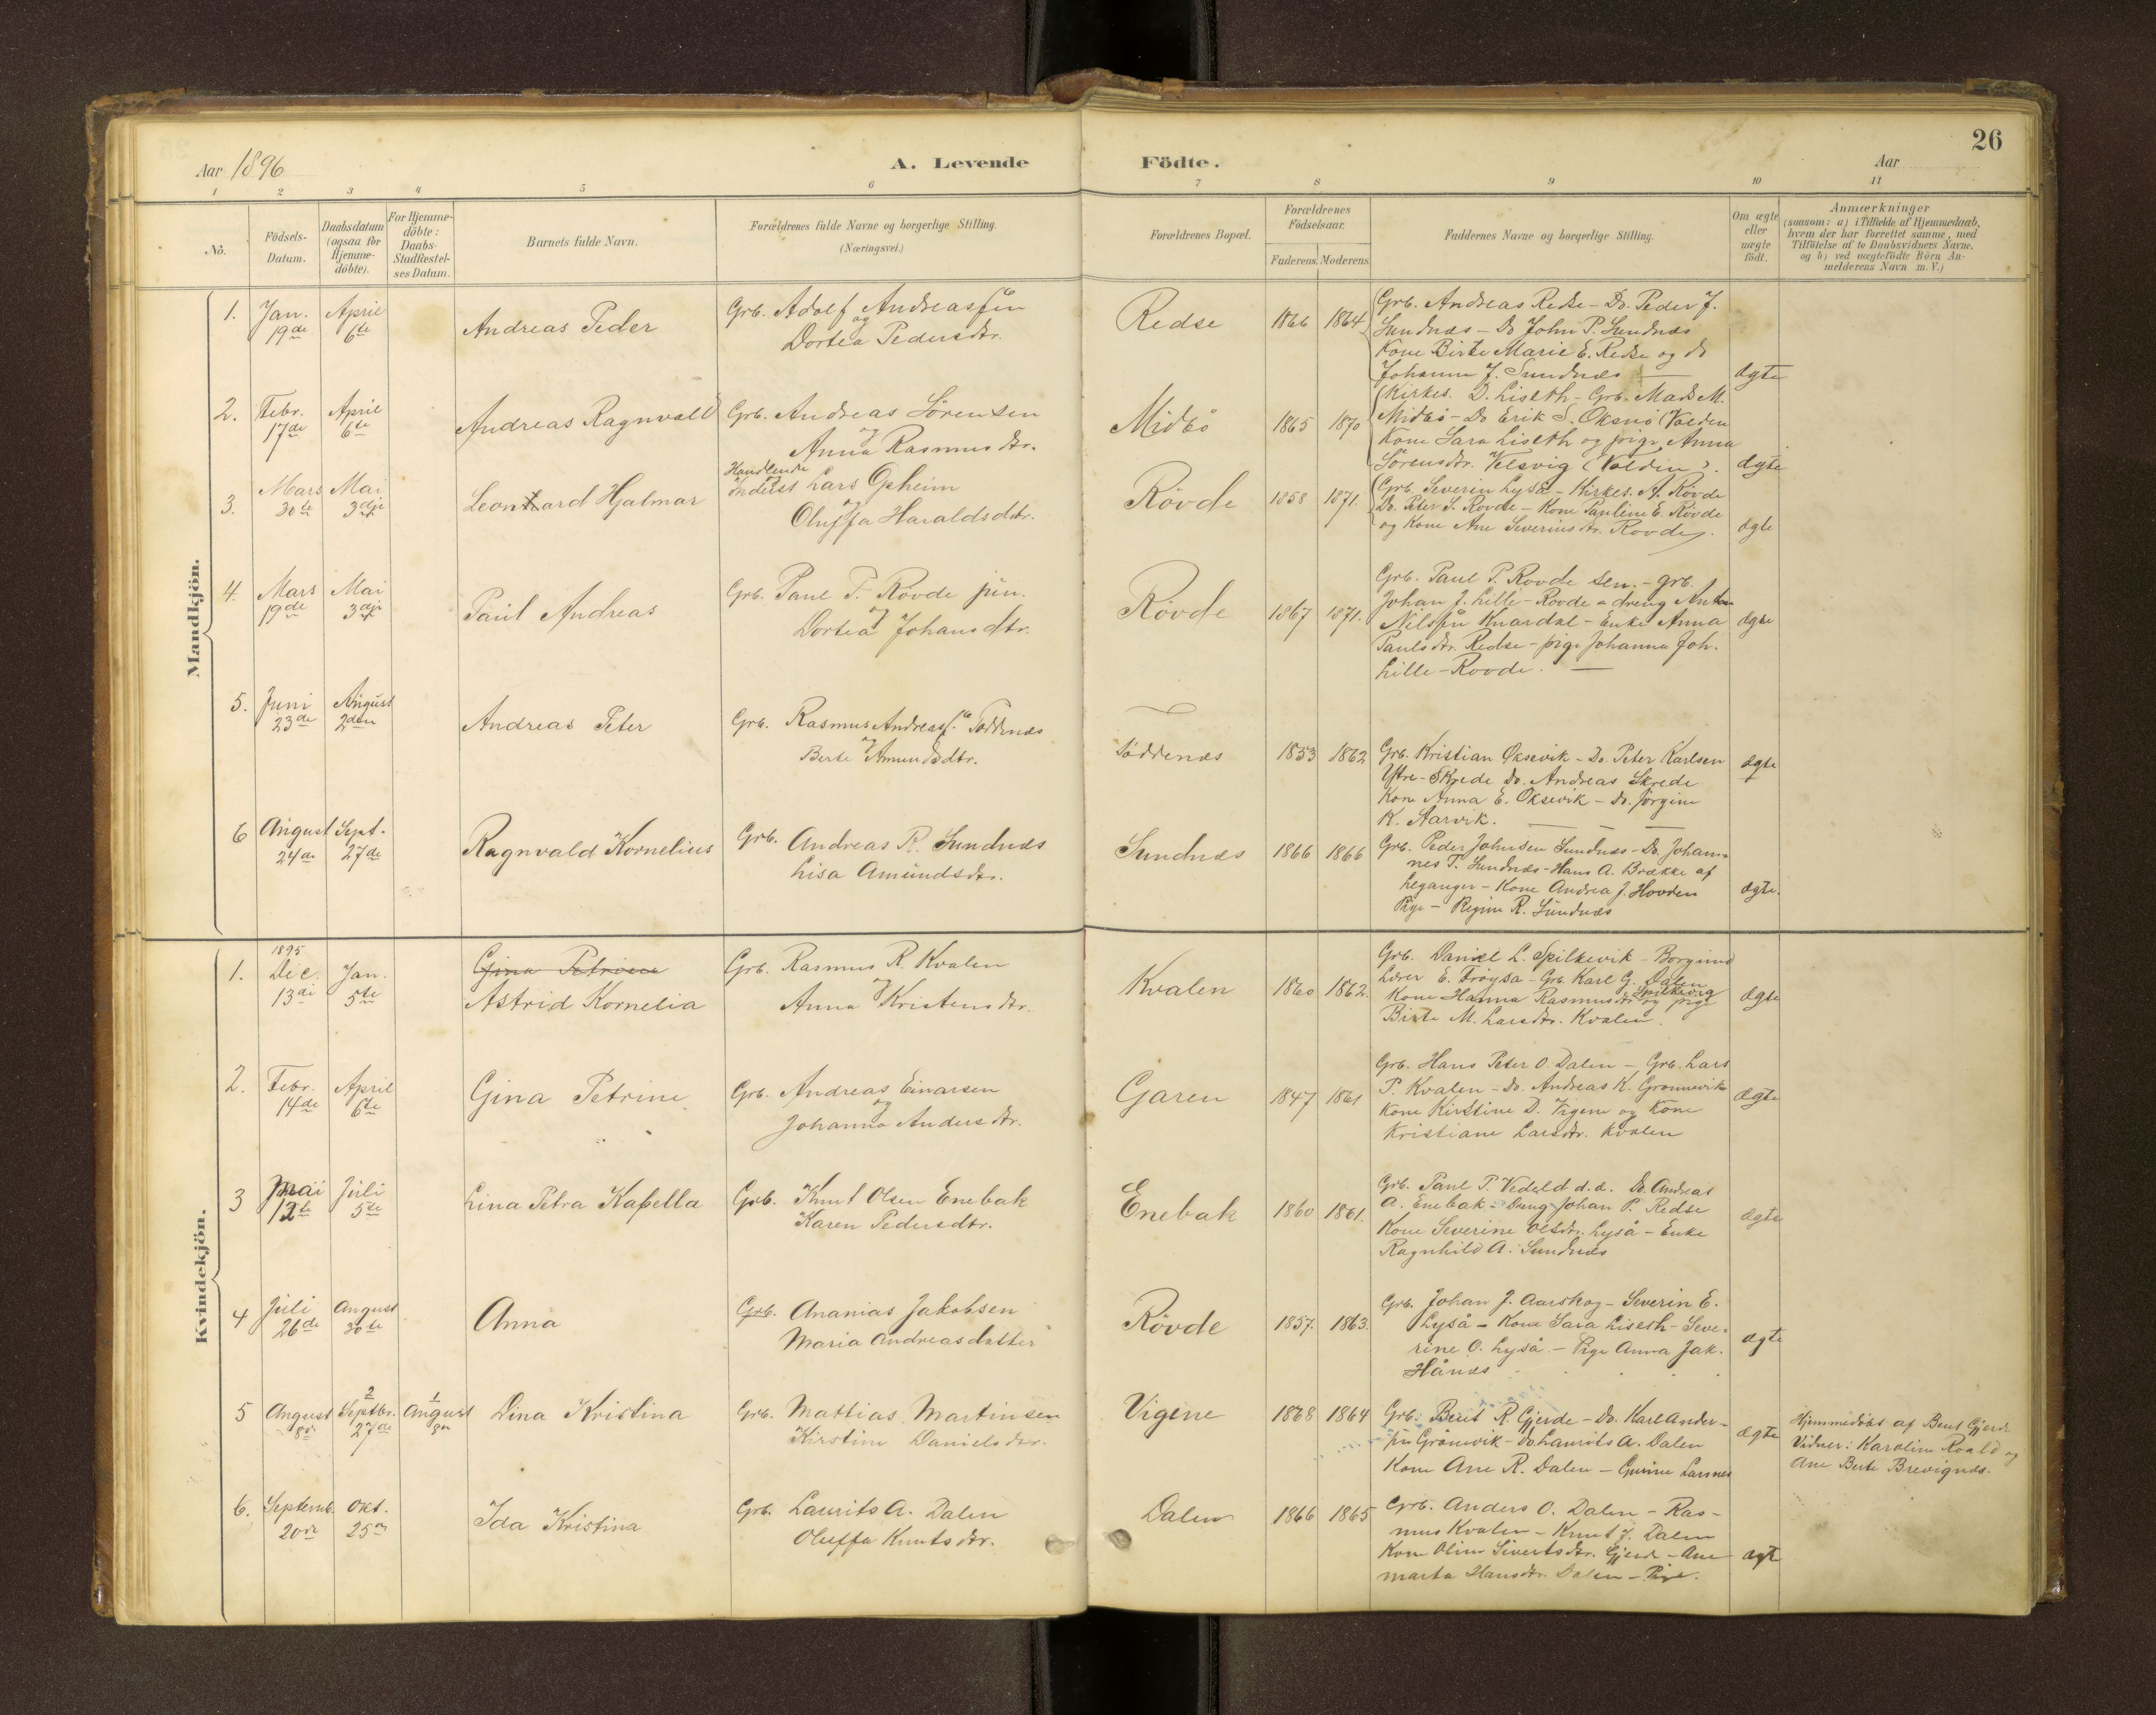 26
Aar 1896
A. Levende
Födte.
Aar
1 2 3 4 5 6 7 8 9 10 11
No.
Födsels-
Datum.
Daabsdatum
(ogsaa for
Hjemme-
döbte).
For Hjemme-
döbte:
Daabs-
Stadfæstel-
ses Datum.
Barnets fulde Navn.
Forældrenes fulde Navne og borgerlige Stilling.
(Næringsvei.)
Forældrenes Bopæl.
Forældrenes
Födselsaar.
Faderens. Moderens.
Faddernes Navne og borgerlige Stilling.
Om ægte
eller
uægte
födt.
Anmærkninger
(saasom: a) i Tilfælde af Hjemmedaab,
hvem der har forrettet samme, med
Tilföielse af to Daabsvidners Navne.
og b) ved uægtefödte Börn An-
melderens Navn m. V.)
Mandkjön.
1.
Jan.
19de
April
6te
Andreas Peder
Grb. Adolf Andreassøn
og
Dortea Pedersdtr.
Redse
1866 1864
Grb. Andreas Redse - Do. Peder J.
Sundnæs - Do John P. Sundnæs
Kone Birte Marie E. Redse og do
Johanne J. Sundnæs
ægte
2.
Febr.
17de
April
6te
Andreas Ragnvald
Grb. Andreas Sørensen
og
Anna Rasmusdtr.
Midbö
1865 1870
Kirkes. D. Liseth - Grb. Mads M.
Midbö - Do Erik S. Oksnö (Volden
Kone Sara Liseth og pige Anna
Sørensdtr. Velsvig (Volden).
ægte
3.
Mars
30te
Mai
3dje
Leonhard Hjalmar
Handlende
og
Inderst Lars Opheim
og
Oluffa Haraldsdtr.
Rövde
1858 1871.
Grb. Severin Lyså - Kirkes. A. Rövde
Do. Peter S. Rovde - Kone Pauline E. Rövde
og Kone Ane Severinsdtr. Rovde.
ægte
4.
Mars
19de
Mai
3dje
Paul Andreas
Grb. Paul P. Rövde jun.
og
Dortea Johansdtr.
Rövde
1867 1871.
Grb. Paul P. Rovde sen. - grb.
Johan J. Lille-Rovde - dreng Anton
Nilssøn Knardal - Enke Anna
Paulsdtr. Redse - pige Johanna Joh.
Lille-Rovde.
ægte
5.
Juni
23de
August
2den
Andreas Peter
Grb. Rasmus Andreass. Töddenæs
og
Berte Amundsdtr.
Töddenæs
1853 1862
Grb. Kristian Øksevik - Do. Peter Karlsen
Ytre-Skrede Do. Andreas Skrede
Kone Anna E. Oksevik - do. Jørgine
K. Aarvik.
ægte
6
August
24de
Sept.
27de
Ragnvald Kornelius
Grb. Andreas R. Sundnæs
Lisa Amundsdtr.
Sundnæs
1866 1866
Grb. Peder Johnsen Sundnæs - Do. Johan-
nes T. Sundnæs - Hans A. Brække af
Leganger - Kone Andrea J. Hovden
Pige - Regine R. Sundnæs
ægte.
Kvindekjön.
1.
1895
Dec.
13de
Jan.
5te
Gina Petrine
Astrid Kornelia
Grb. Rasmus R. Kvalen
og
Anna Kristensdtr.
Kvalen
1860 1862.
Grb. Daniel L. Spilkevik - Borgund
Lærer E. Frøysa - Grb. Karl G. Dalen
Spilkevig
Kone Hanna Rasmusdtr og pige
Birte M. Larsdtr. Kvalen.
ægte
2.
Febr.
14de
April
6te
Gina Petrine
Grb. Andreas Einarsen
og
Johanna Andersdtr.
Garen
1847 1861
Grb. Hans Peter O. Dalen - Grb. Lars
P. Kvalen - Do. Andreas K. Gronnevik
Kone Kirstine D. Vigene og Kone
Kristiane Larsdtr. Kvalen
ægte
3
Mai
12te
Juli
5te
Lina Petra Kapella
Grb. Knut Olsen Enebak
Karen Pedersdtr.
Enebak
1860 1861.
Grb. Paul P. Vedeld d.d. Do. Andreas
A. Enebak - Dreng Johan P. Redse
Kone Severine Olsdtr. Lyså - Enke
Ragnhild A. Sundnæs
ægte
4
Juli
26de
August
30te
Anna
Grb. Ananias Jakobsen
Maria Andreasdatter
Rövde
1857. 1863.
Grb. Johan J. Aarskog - Severin E.
Lyså - Kone Sara Liseth - Seve-
rine O. Lyså. - Pige Anna Jak.
Hånæs
ægte
5
August
8de
2
Septbr.
27de
1
August
8de
Dina Kristina
Grb. Mattias Martinsen
Kirstine Danielsdtr.
Vigene
1868 1864
Grb. Bent R. Gjerde - Do. Karl Ander-
søn Grönevik - Do Laurits A. Dalen
Kone Ane R. Dalen - Gurine Larsnes
ægte
Hjemmedöbt af Bent Gjerde
Vidner: Karoline Roald og
Ane Berte Brevignæs.
6.
Septemb.
20de
Okt.
25de
Ida Kristina
Grb. Laurits A. Dalen
Oluffa Knutsdtr.
Dalen
1866 1865
Grb. Anders O. Dalen - Ras-
mus Kvalen - Knut J. Dalen
Kone Oline Sivertsdtr. Gjerde - Ane
marta Hansdtr. Dalen - Pige.
ægte